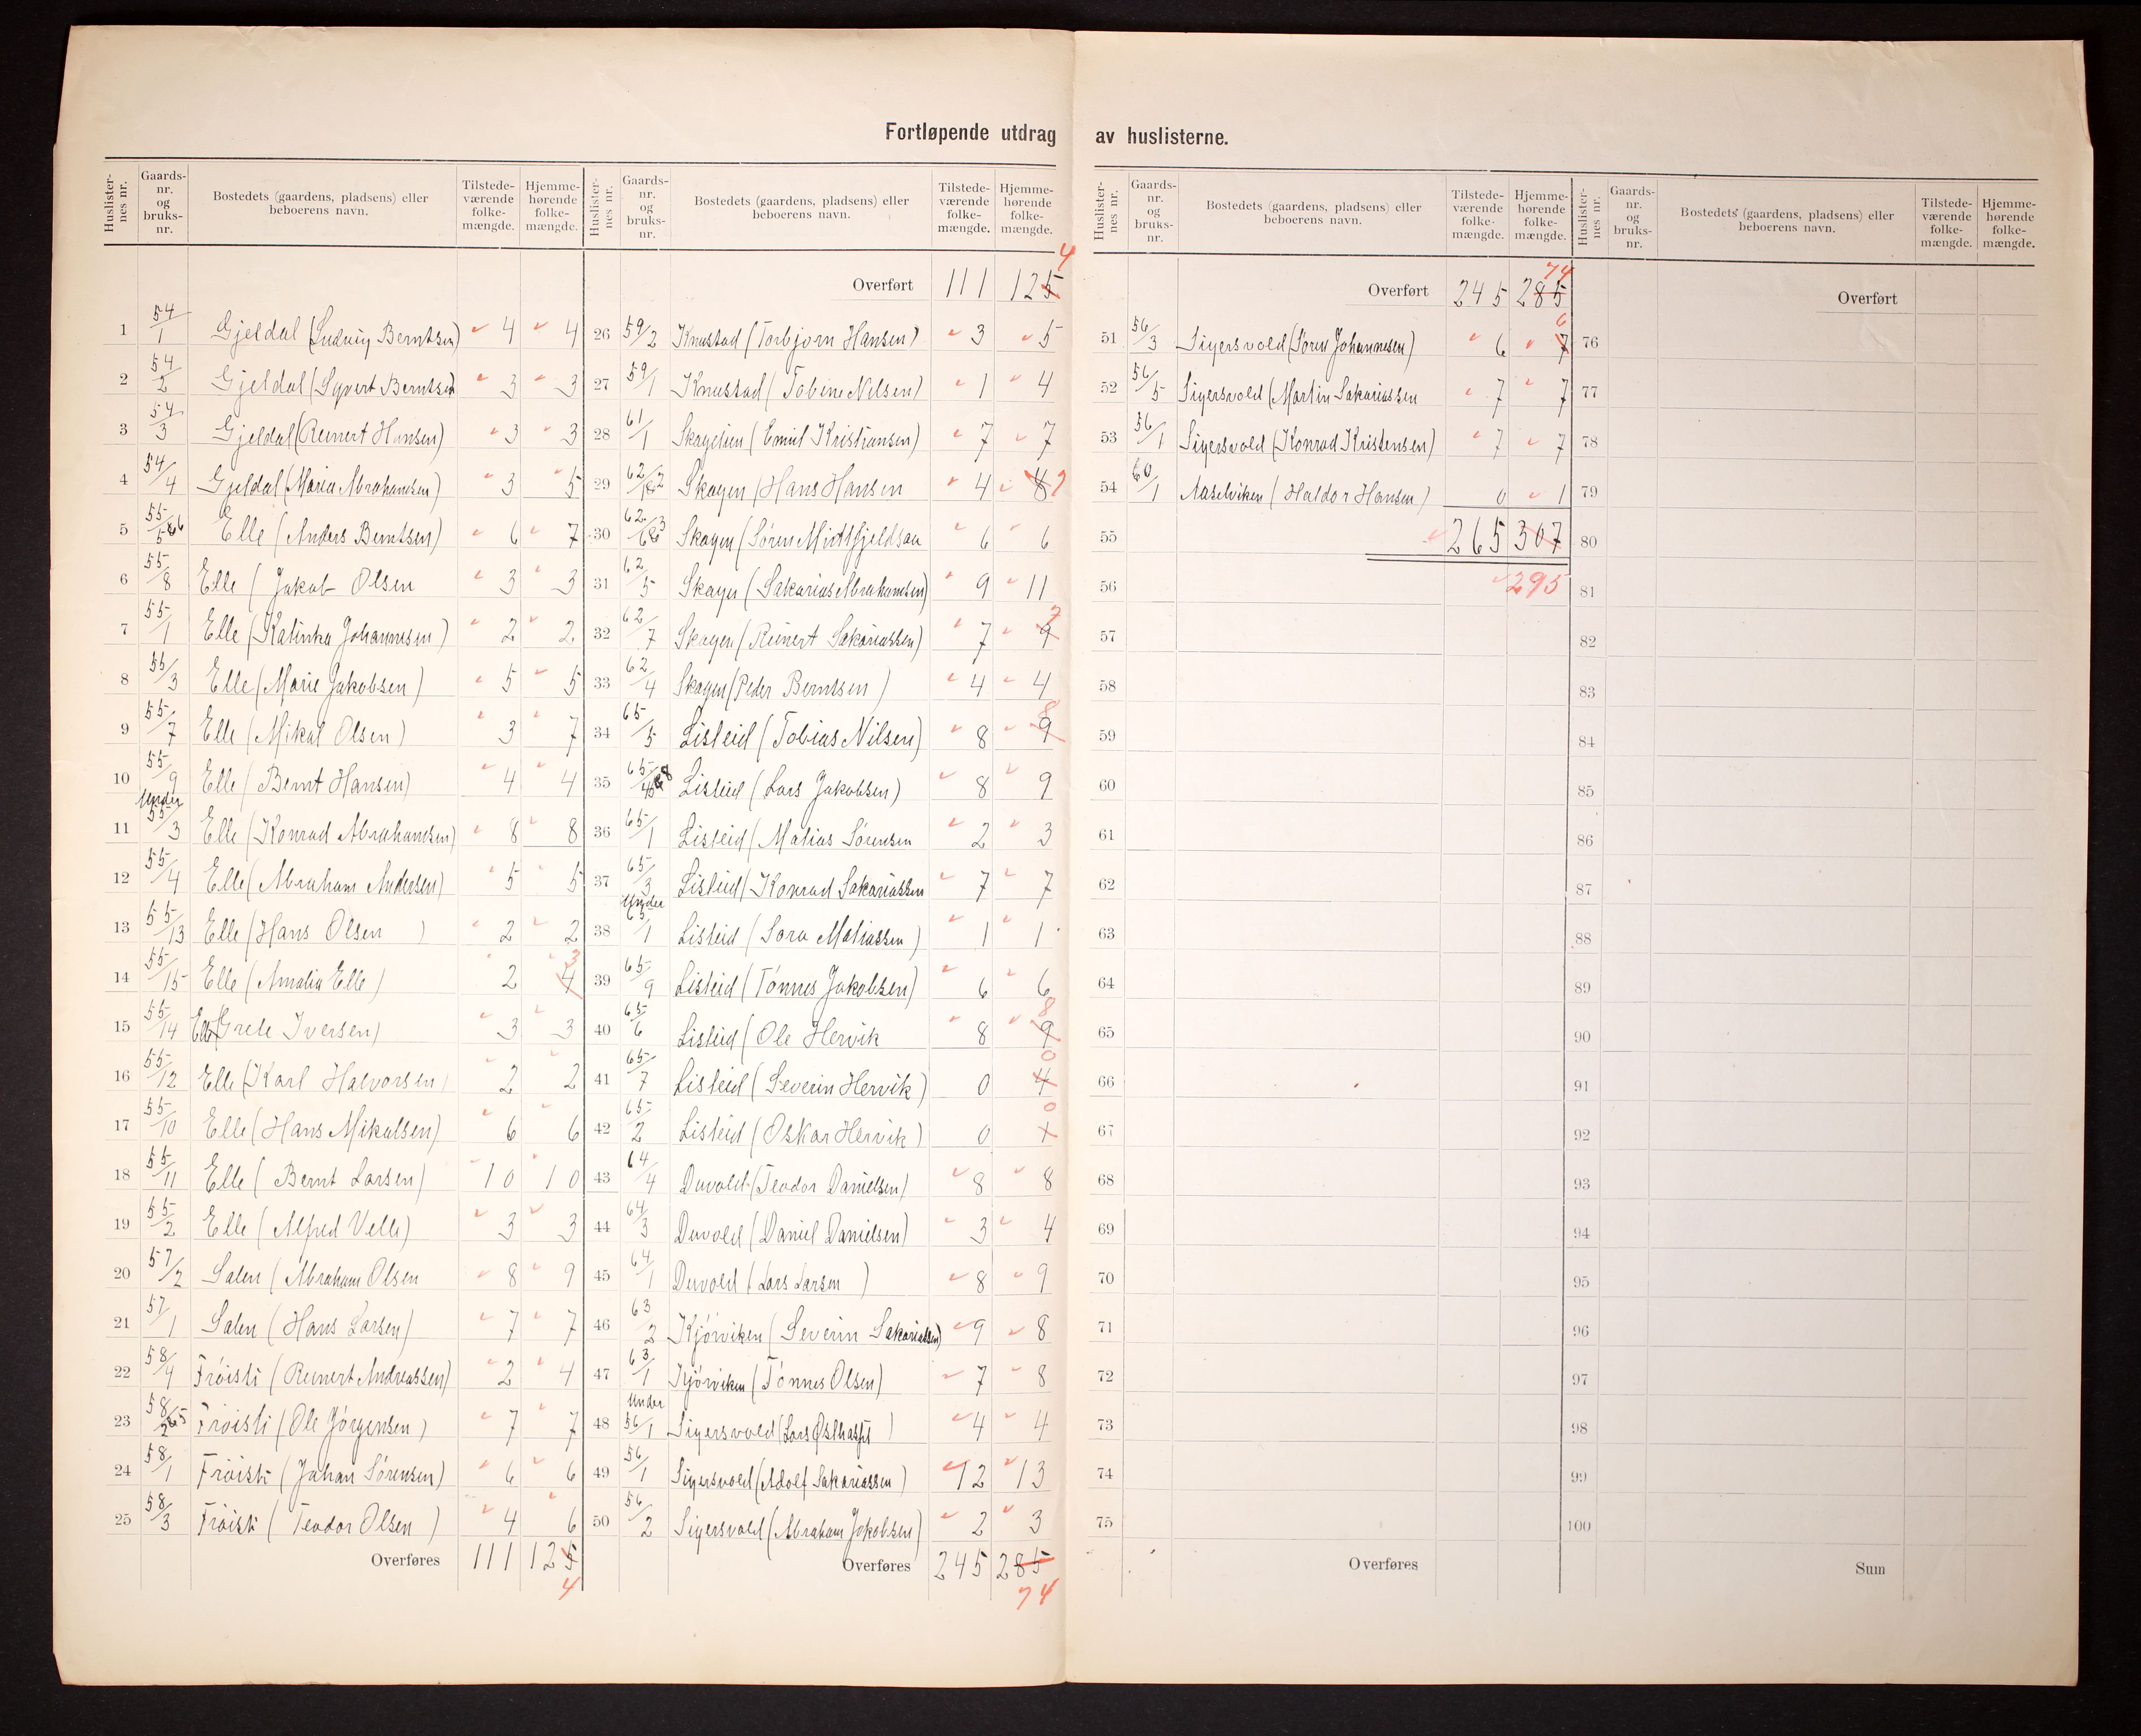 Fortløpende utdrag av huslisterne.
Huslister-nes nr. | Gaards-nr. og bruks-nr. | Bostedets (gaardens, pladsens) eller beboerens navn. | Tilstede-værende folke-mængde. | Hjemme-hørende folke-mængde.
1 54/1 Gjeldal (Ludvig Berntsen) 4 4
2 54/2 Gjeldal (Syvert Berntsen 3 3
3 54/3 Gjeldal (Reinert Hansen) 3 3
4 54/4 Gjeldal (Maria Abrahamsen) 3 5
5 55/5&6 Elle (Anders Berntsen) 6 7
6 55/8 Elle (Jakob Olsen 3 3
7 55/1 Elle (Katinka Johannesen) 2 2
8 55/3 Elle (Marie Jakobsen) 5 5
9 55/7 Elle (Mikal Olsen) 3 7
10 55/9 Elle (Bernt Hansen) 4 4
11 Under 55/3 Elle (Konrad Abrahamsen) 8 8
12 55/4 Elle (Abraham Andersen) 5 5
13 55/13 Elle (Hans Olsen ) 2 2
14 55/15 Elle (Amalia Elle) 2 4 3
15 55/14 Elle Grete Iversen) 3 3
16 55/12 Elle (Karl Halvorsen) 2 2
17 55/10 Elle (Hans Mikalsen) 6 6
18 55/11 Elle (Bernt Larsen) 10 10
19 55/2 Elle (Alfred Velle) 3 3
20 57/2 Salen (Abraham Olsen 8 9
21 57/1 Salen (Hans Larsen) 7 7
22 58/4 Frøisti (Reinert Andreassen) 2 4
23 58/2&5 Frøisti (Ole Jørgensen) 7 7
24 58/1 Frøisti (Johan Sørensen) 6 6
25 58/3 Frøisti (Teodor Olsen) 4 6
Overføres 111 125 4
Huslister-nes nr. | Gaards-nr. og bruks-nr. | Bostedets (gaardens, pladsens) eller beboerens navn. | Tilstede-værende folke-mængde. | Hjemme-hørende folke-mængde.
Overført 111 125 4
26 59/2 Knustad (Torbjørn Hansen) 3 5
27 59/1 Knustad (Tobine Nilsen) 1 4
28 61/1 Skageslien (Emil Kristiansen) 7 7
29 62/1&2 Skagen (Hans Hansen 4 8 7
30 62/6&3 Skagen (Søren Midtfjeldsaa 6 6
31 62/5 Skagen (Sakarias Abrahamsen) 9 11
32 62/7 Skagen (Reinert Sakariassen) 7 9 7
33 62/4 Skagen (Peder Berntsen) 4 4
34 65/5 Lisleid (Tobias Nilsen) 8 9 8
35 65/4&8 Lisleid (Lars Jakobsen) 8 9
36 65/1 Lisleid (Matias Sørensen 2 3
37 65/3 Lisleid (Konrad Sakariassen 7 7
38 Under 65/1 Lisleid (Sara Matiassen) 1 1
39 65/9 Lisleid (Tønnes Jakobsen) 6 6
40 65/6 Lisleid (Ole Hervik 8 9 8
41 65/7 Lisleid (Severin Hervik) 0 4 0
42 65/2 Lisleid (Oskar Hervik) 0 0
43 64/4 Duvold (Teodor Danielsen) 8 8
44 64/3 Duvold (Daniel Danielsen) 3 4
45 64/1 Duvold (Lars Larsen ) 8 9
46 63/2 Kjørviken (Severin Sakariassen) 9 8
47 63/1 Kjørviken (Tønnes Olsen) 7 8
48 Under 56/1 Sigersvold (Lars ) 4 4
49 56/1 Sigersvold (Adolf Sakariassen) 12 13
50 56/2 Sigersvold (Abraham Jakobsen) 2 3
Overføres 245 285 74
Huslister-nes nr. | Gaards-nr. og bruks-nr. | Bostedets (gaardens, pladsens) eller beboerens navn. | Tilstede-værende folke-mængde. | Hjemme-hørende folke-mængde.
Overført 245 285 74
51 56/3 Sigersvold (Søren Johannesen) 6 7 6
52 56/5 Sigersvold (Martin Sakariassen 7 7
53 56/1 Sigersvold (Konrad Kristensen) 7 7
54 60/1 (Haldor Hansen) 0 1
55 265 307
56 295
57
58
59
60
61
62
63
64
65
66
67
68
69
70
71
72
73
74
75
Overføres
Huslister-nes nr. | Gaards-nr. og bruks-nr. | Bostedets (gaardens, pladsens) eller beboerens navn. | Tilstede-værende folke-mængde. | Hjemme-hørende folke-mængde.
Overført
76
77
78
79
80
81
82
83
84
85
86
87
88
89
90
91
92
93
94
95
96
97
98
99
100
Sum